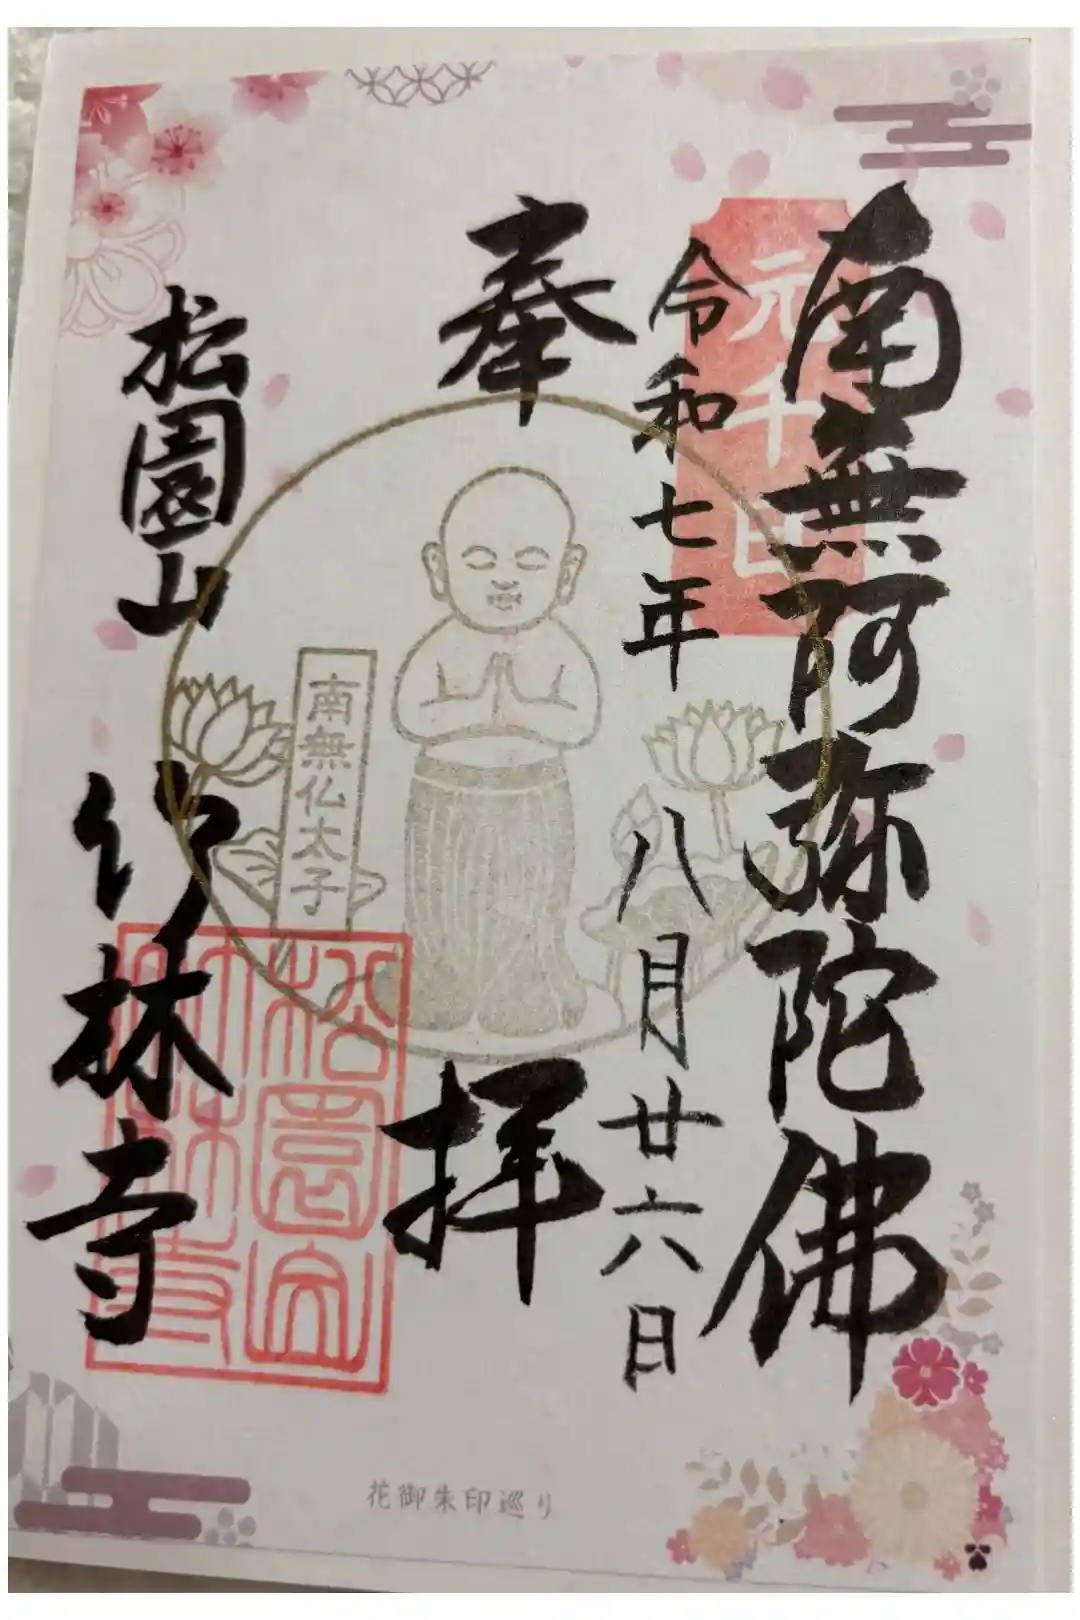 南無阿弥陀佛
元千日
令和七年 八月廿六日
奉拝
南無仏太子
松園山 竹林寺
松園山
竹林寺
花御朱印巡り